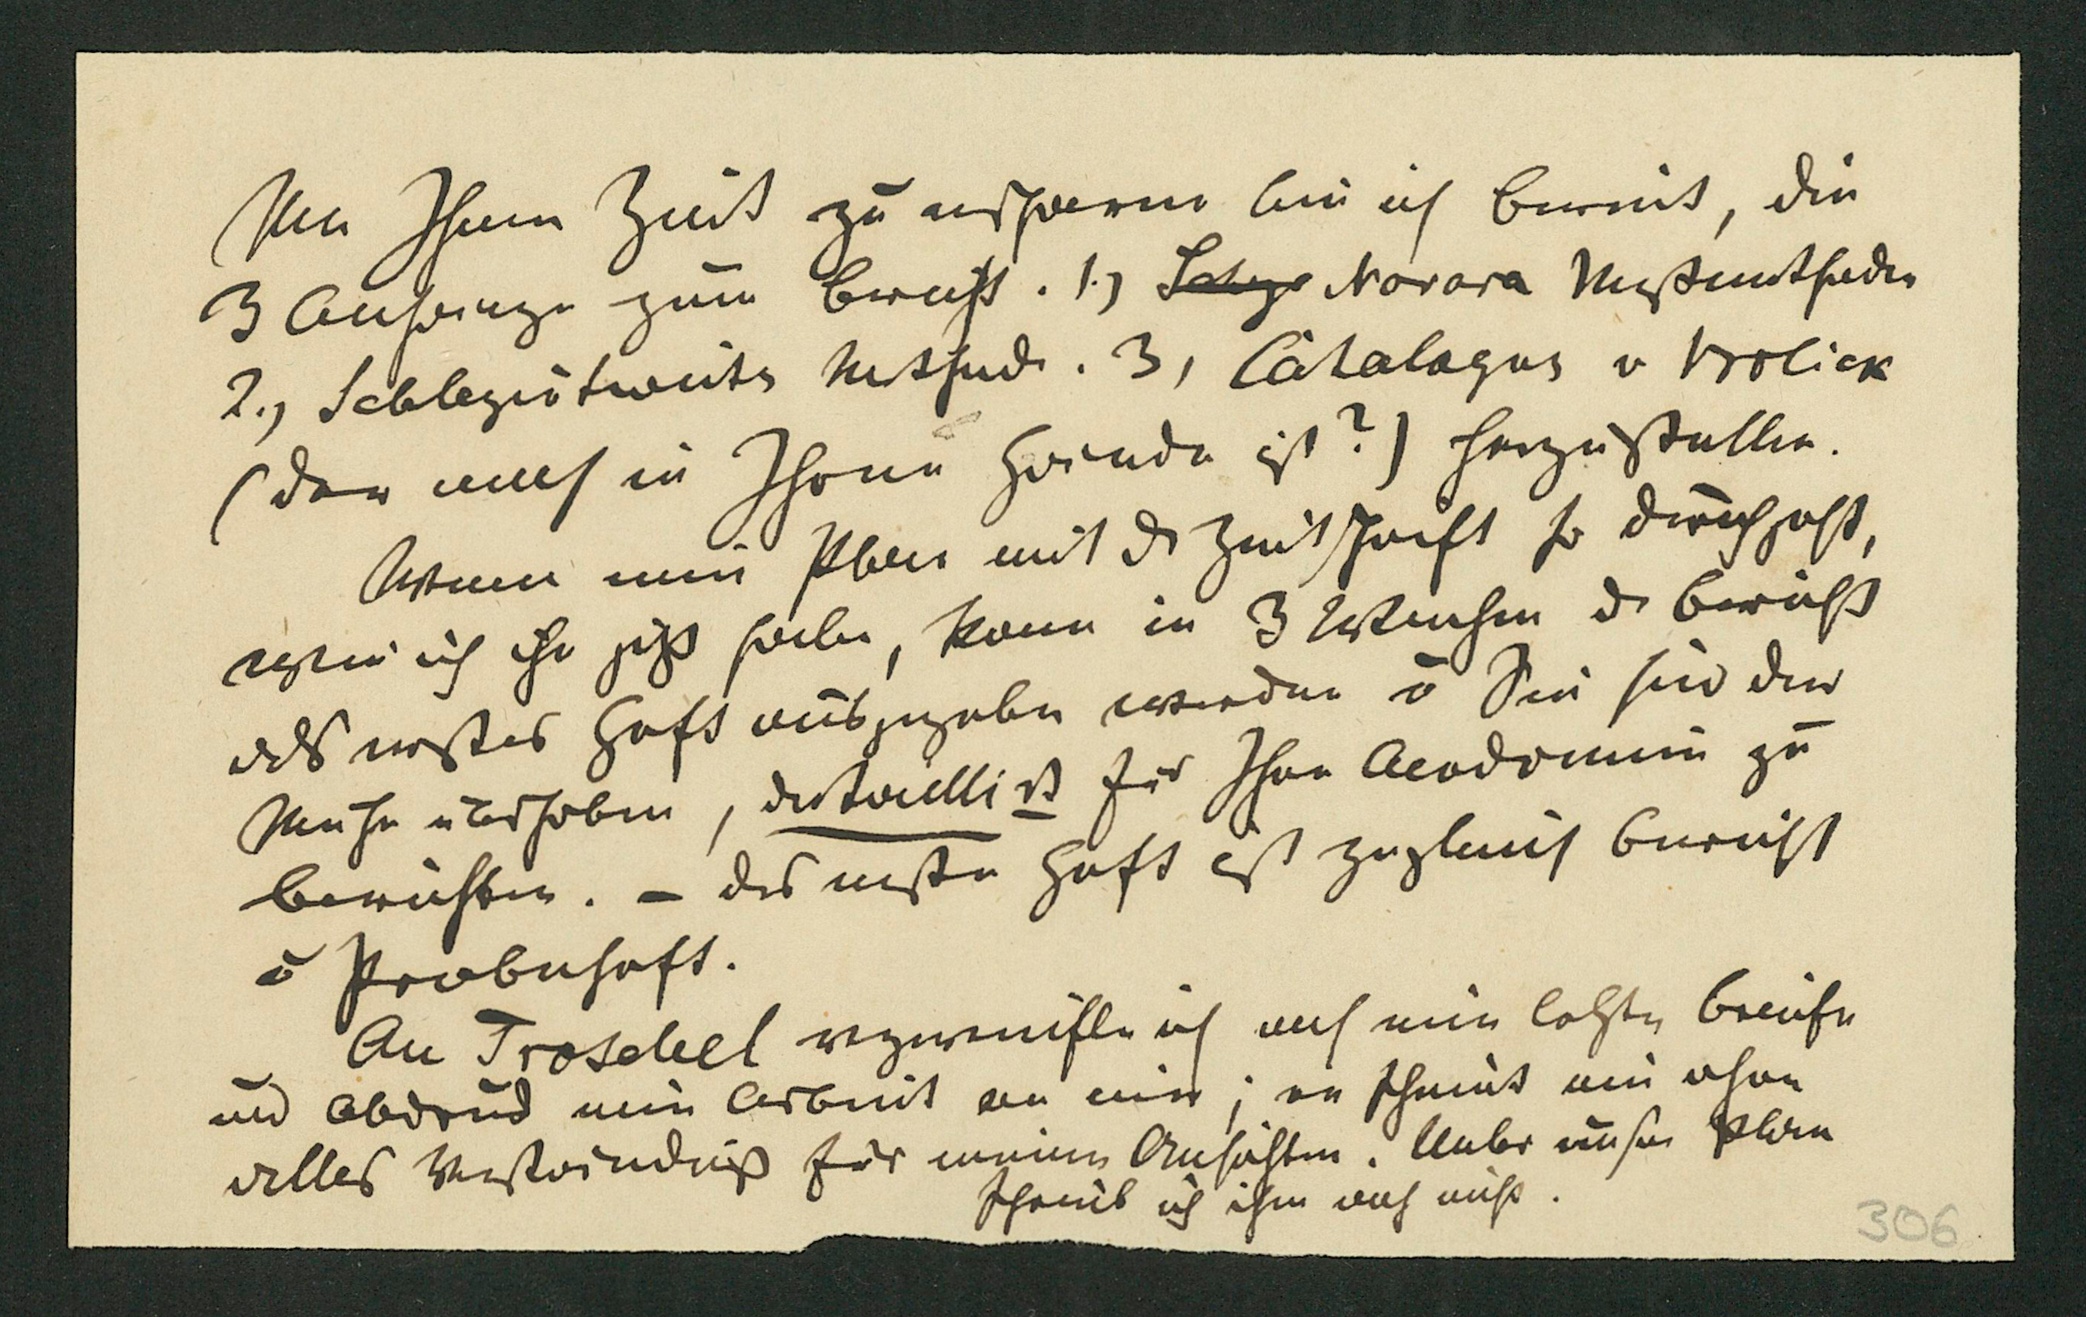 Um Ihnen Zeit zu ersparen bin ich bereit, die
3 Anhänge zum Bericht. 1.) Schlage Novara Meßmethoden
2., Schlagintweits Methode. 3, Catalogus v Vrolick
(der noch in Ihren Händen ist?) herzustellen.
Wenn mein Plan mit d Zeitschrift so durchgeht,
wie ich ihn jetzt habe, kann in 3 Wochen d Bericht
als erstes Heft ausgegeben werden u Sie sind der
Mühe überhoben, detaillirt für Ihre Academie zu
berichten. – das erste Heft ist zugleich Bericht
u Probeheft.
An Troschel verzweifle ich nach mein letzten Briefe
und Abdruck mein Arbeit an mir; er scheint mir ohne
alles Verständniß für meine Ansichten. Ueber unsern Plan
schreib ich ihm noch nicht.
306